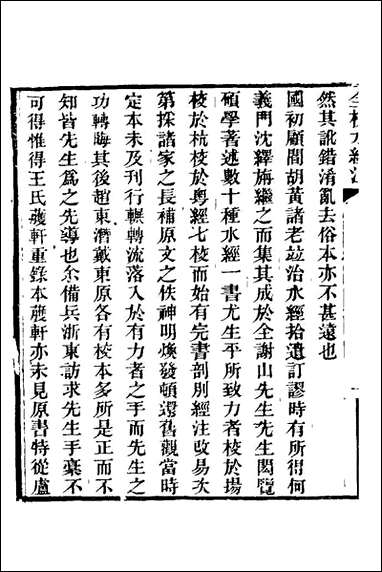 全校水經注
然其訛錯淆亂去俗本亦不甚遠也
國初顧閻胡黃諸老竝治水經拾遺訂謬時有所得何
義門沈繹旃繼之而集其成於全謝山先生先生閎覽
碩學著述數十種水經一書尤生平所致力者校於揚
校於杭校於粵經七校而始有完書剖別經注改易次
第採諸家之長補原文之佚神明煥發頓還舊觀當時
定本未及刊行輾轉流落入於有力者之手而先生之
功轉晦其後趙東潛戴東原各有校本多所是正而不
知皆先生爲之先導也余備兵浙東訪求先生手稾不
可得惟得王氏䕶軒重錄本䕶軒亦未見原書特從盧